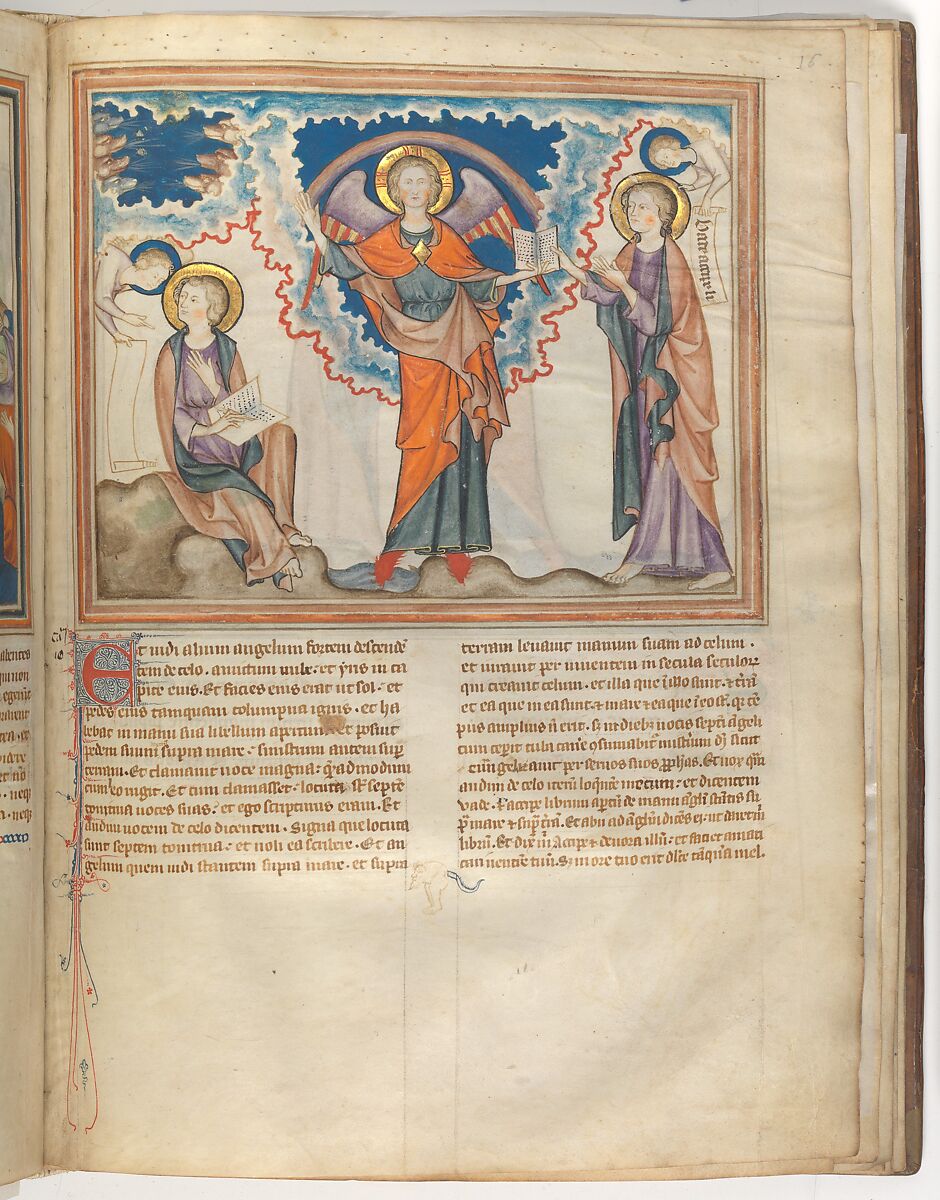 16
Vade accipe li
Et uidi alium angelum fortem descende
tem de celo. amictum nube. et yris in ca
pite eius. Et facies eius erat ut sol. et
pedes eius tamquam columpna ignis. et ha
bebat in manu sua libellum apertum. et posuit
pedem suum supra mare. sinistrum autem sup
terram. Et clamauit uoce magna. q̄ ad modū
cum leo rugit. Et cum clamasset. locuta s̄t septē
tonitrua uoces suas. et ego scripturus eram. Et
audiui uocem de celo dicentem. Signa que locuta
sunt septem tonitrua. et noli ea scribere. Et an
gelum quem uidi stantem supra mare. et supra
terram leuauit manum suam ad celum.
et iurauit per uiuentem in secula seculoꝝ
qui creauit celum. et illa que ī illo sunt. et t̄rā
et ea que in ea sunt. et mare et ea que ī eo s̄t. q̄ tē
pus amplius nō erit. Sꝫ in diebꝫ uocis septī āgeli
cum ceperit tuba can̄e ꝯsumabit᷑ misteriū dī sicut
euāgelizauit per seruos suos ꝓphās. Et uox quā
audiui de celo iterū loquētē mecum. et dicentem
uade. accipe librum ap̄tū de manu āgeli stātis su
pͣ mare et supͣ t̄rā. Et abii ad āgelū dicēs ei. ut daret m̄
librū. Et dixit m̄ Accipe et deuora illū. et faciet amari
cari uentrē tuū. Sꝫ in ore tuo erit dulce tāquā mel.